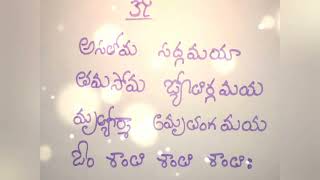 ॐ
అసతోమ సద్గమయా
తమసోమ జ్యోతిర్గమయ
మృత్యోర్మా అమృతంగమయ
ఓం శాంతి శాంతి శాంతిః